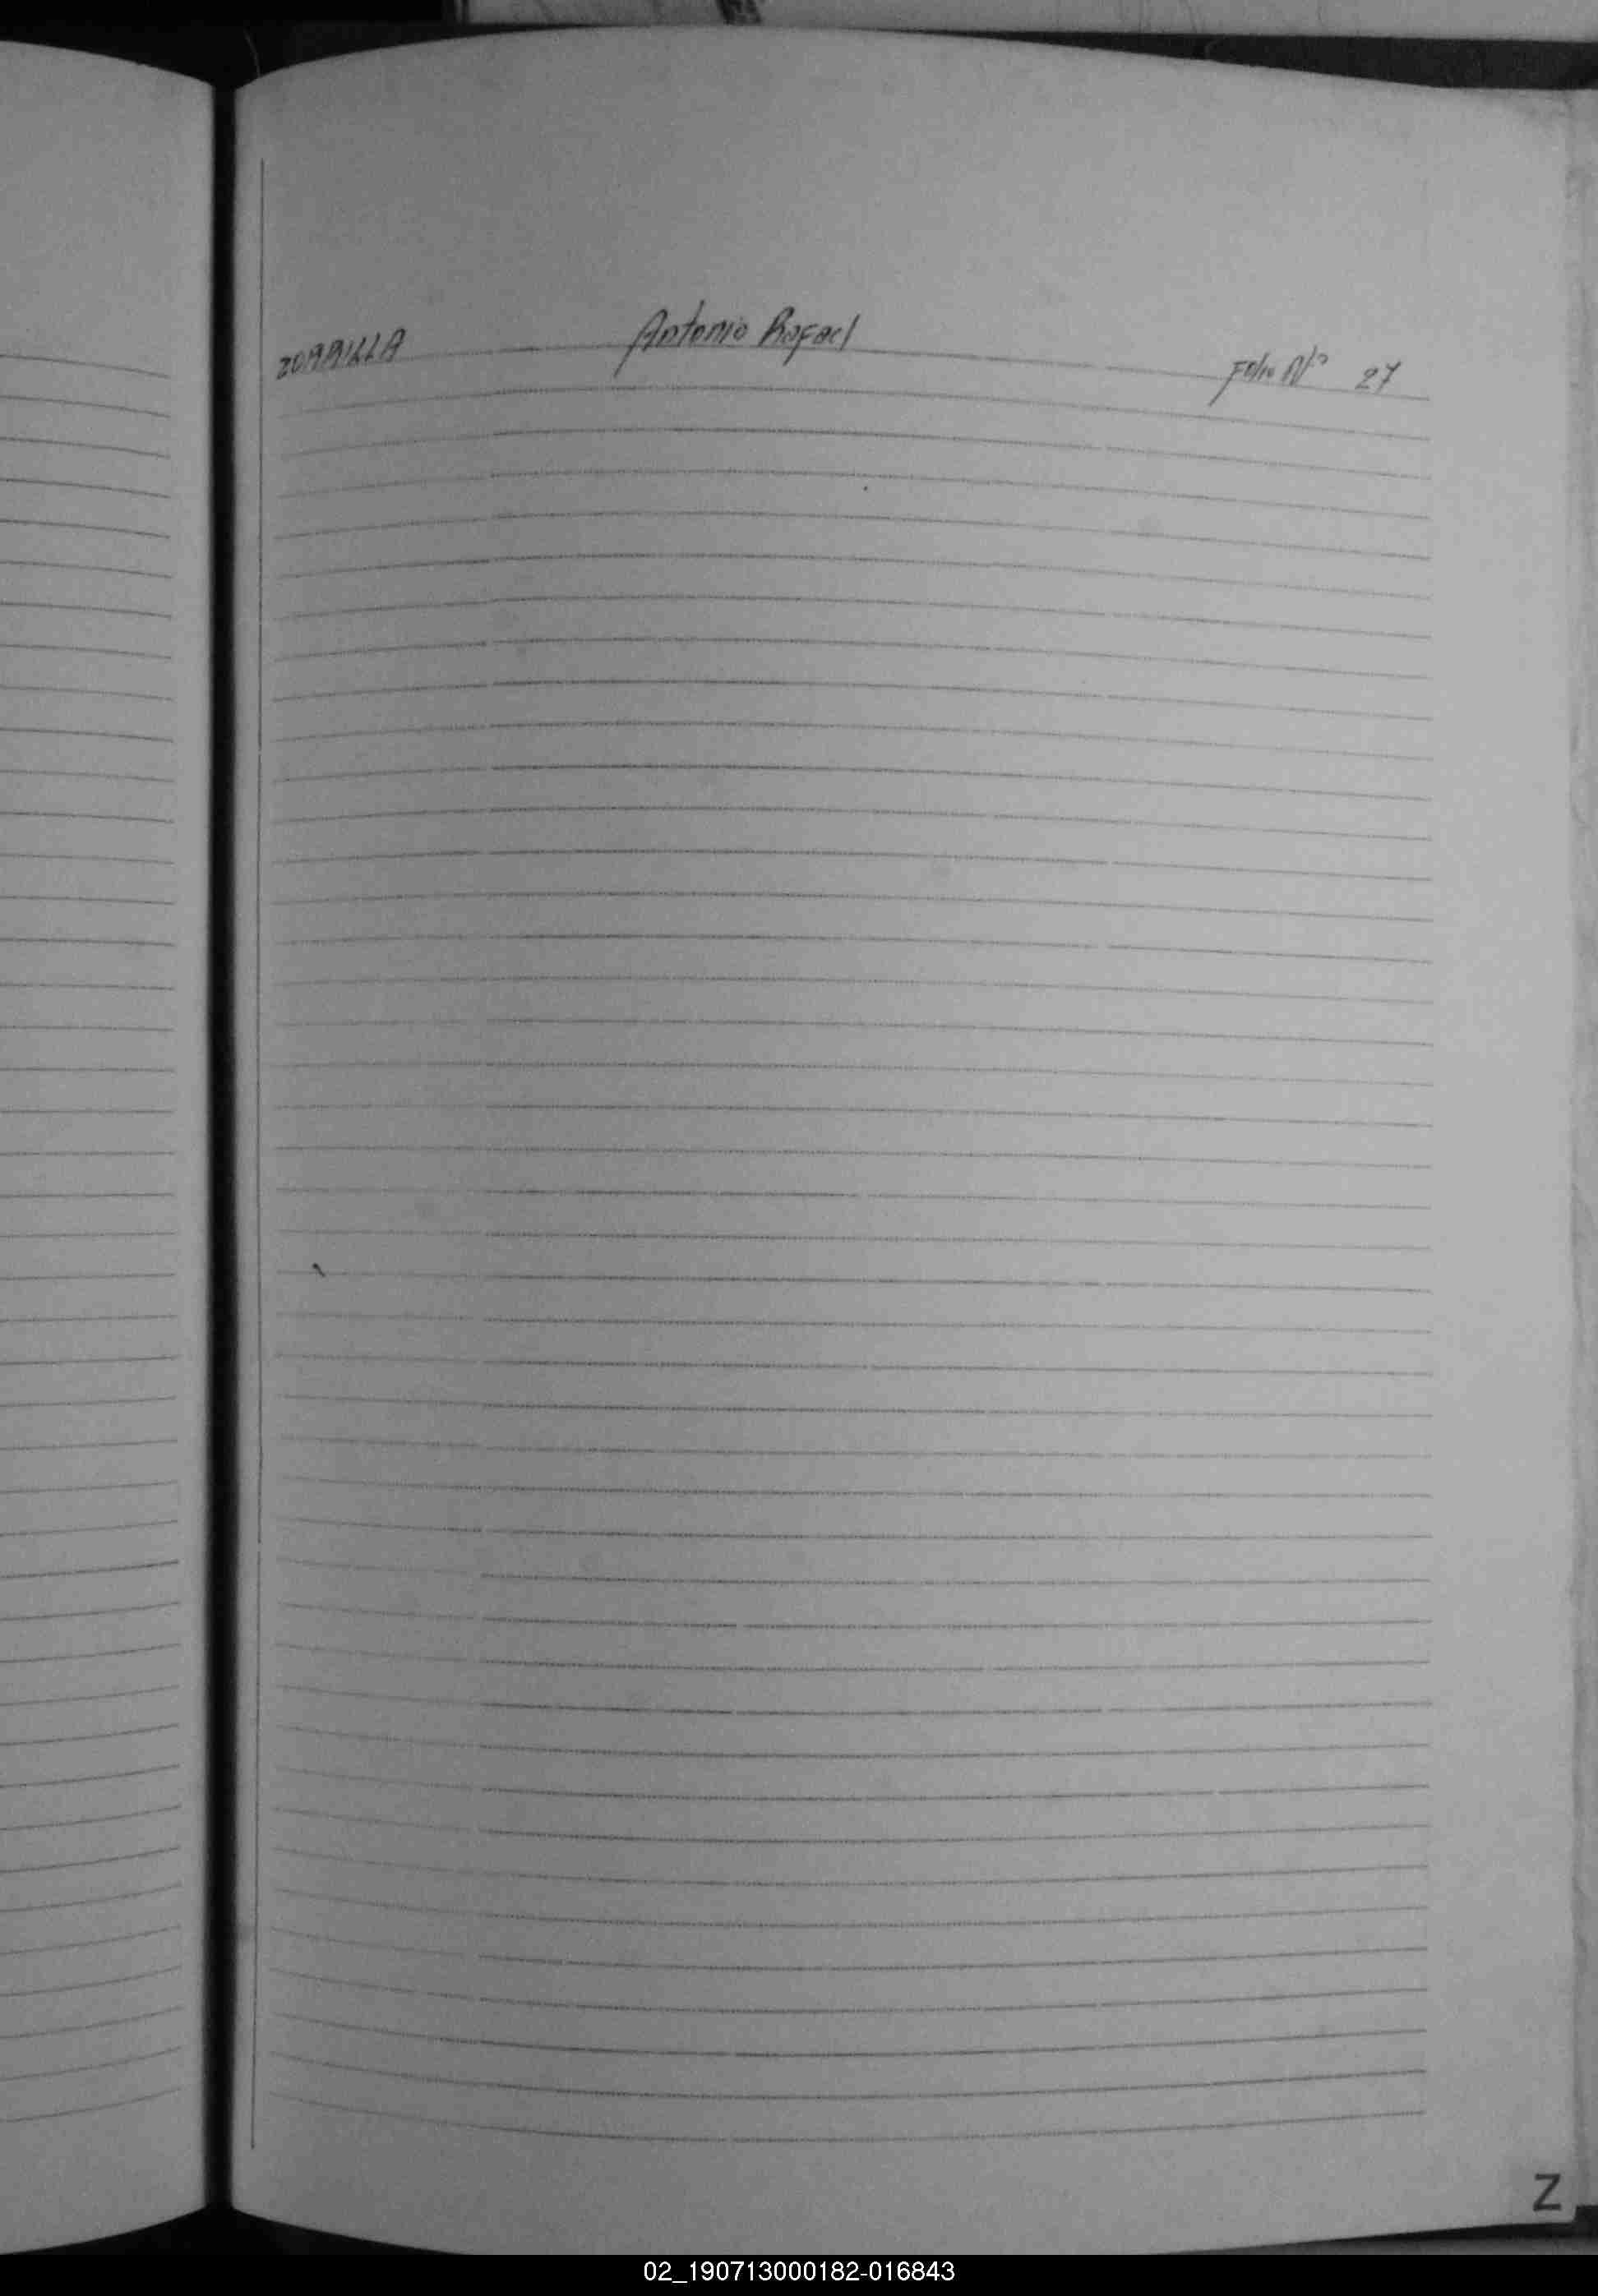 ZORRILLA Antonio Rafael Folio Nº 27
Z
02_190713000182-016843